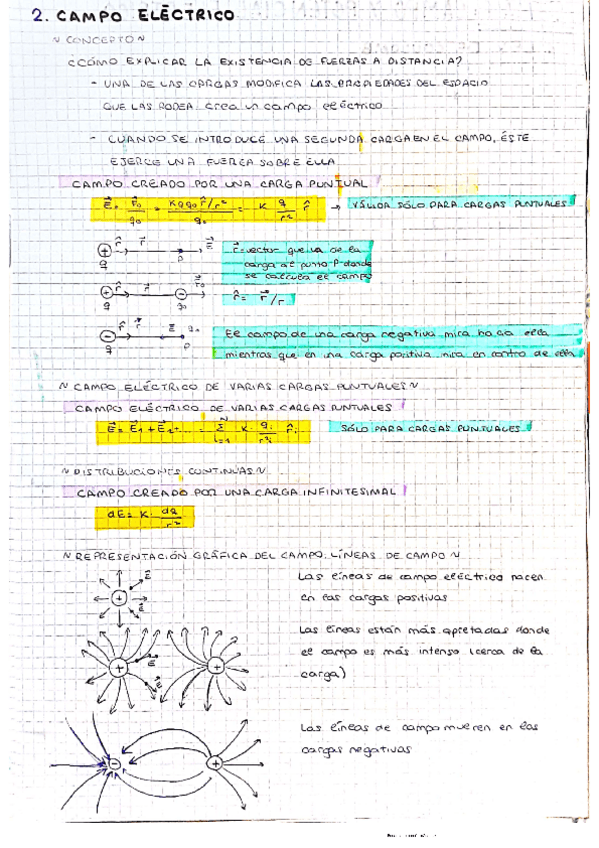 2. CAMPO ELÉCTRICO
~ CONCEPTO ~
¿CÓMO EXPLICAR LA EXISTENCIA DE FUERZAS A DISTANCIA?
- UNA DE LAS CARGAS MODIFICA LAS PROPIEDADES DEL ESPACIO
QUE LAS RODEA crea un campo eléctrico
- CUANDO SE INTRODUCE UNA SEGUNDA CARGA EN EL CAMPO, ÉSTE
EJERCE UNA FUERZA SOBRE ELLA
CAMPO CREADO POR UNA CARGA PUNTUAL
→ VÁLIDA SÓLO PARA CARGAS PUNTUALES
r⃗ = vector que va de la
carga al punto P donde
se calcula el campo
r̂ = r⃗/r
El campo de una carga negativa mira hacia ella
mientras que en una carga positiva mira en contra de ella
~ CAMPO ELÉCTRICO DE VARIAS CARGAS PUNTUALES ~
CAMPO ELÉCTRICO DE VARIAS CARGAS PUNTUALES
SÓLO PARA CARGAS PUNTUALES
~ DISTRIBUCIONES CONTINUAS ~
CAMPO CREADO POR UNA CARGA INFINITESIMAL
~ REPRESENTACIÓN GRÁFICA DEL CAMPO. LÍNEAS DE CAMPO ~
Las líneas de campo eléctrico nacen
en las cargas positivas
Las líneas están más apretadas donde
el campo es más intenso (cerca de la
carga)
Las líneas de campo mueren en las
cargas negativas